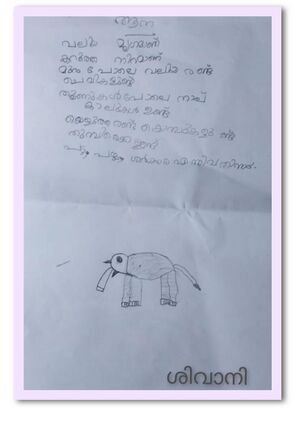 ആന
വലിയ മൃഗമാണ്
കറുത്ത നിറമാണ്
മുറം പോലെ വലിയ രണ്ട്
ചെവികളുണ്ട്
തൂണുകൾപോലെ നാല്
കാലുകൾ ഉണ്ട്
വെളുത്ത രണ്ടു കൊമ്പുകളും ണ്ട്
തുമ്പിക്കൈ ഉണ്ട്
ശർക്കര എന്നിവ തിന്നും.
ശിവാനി